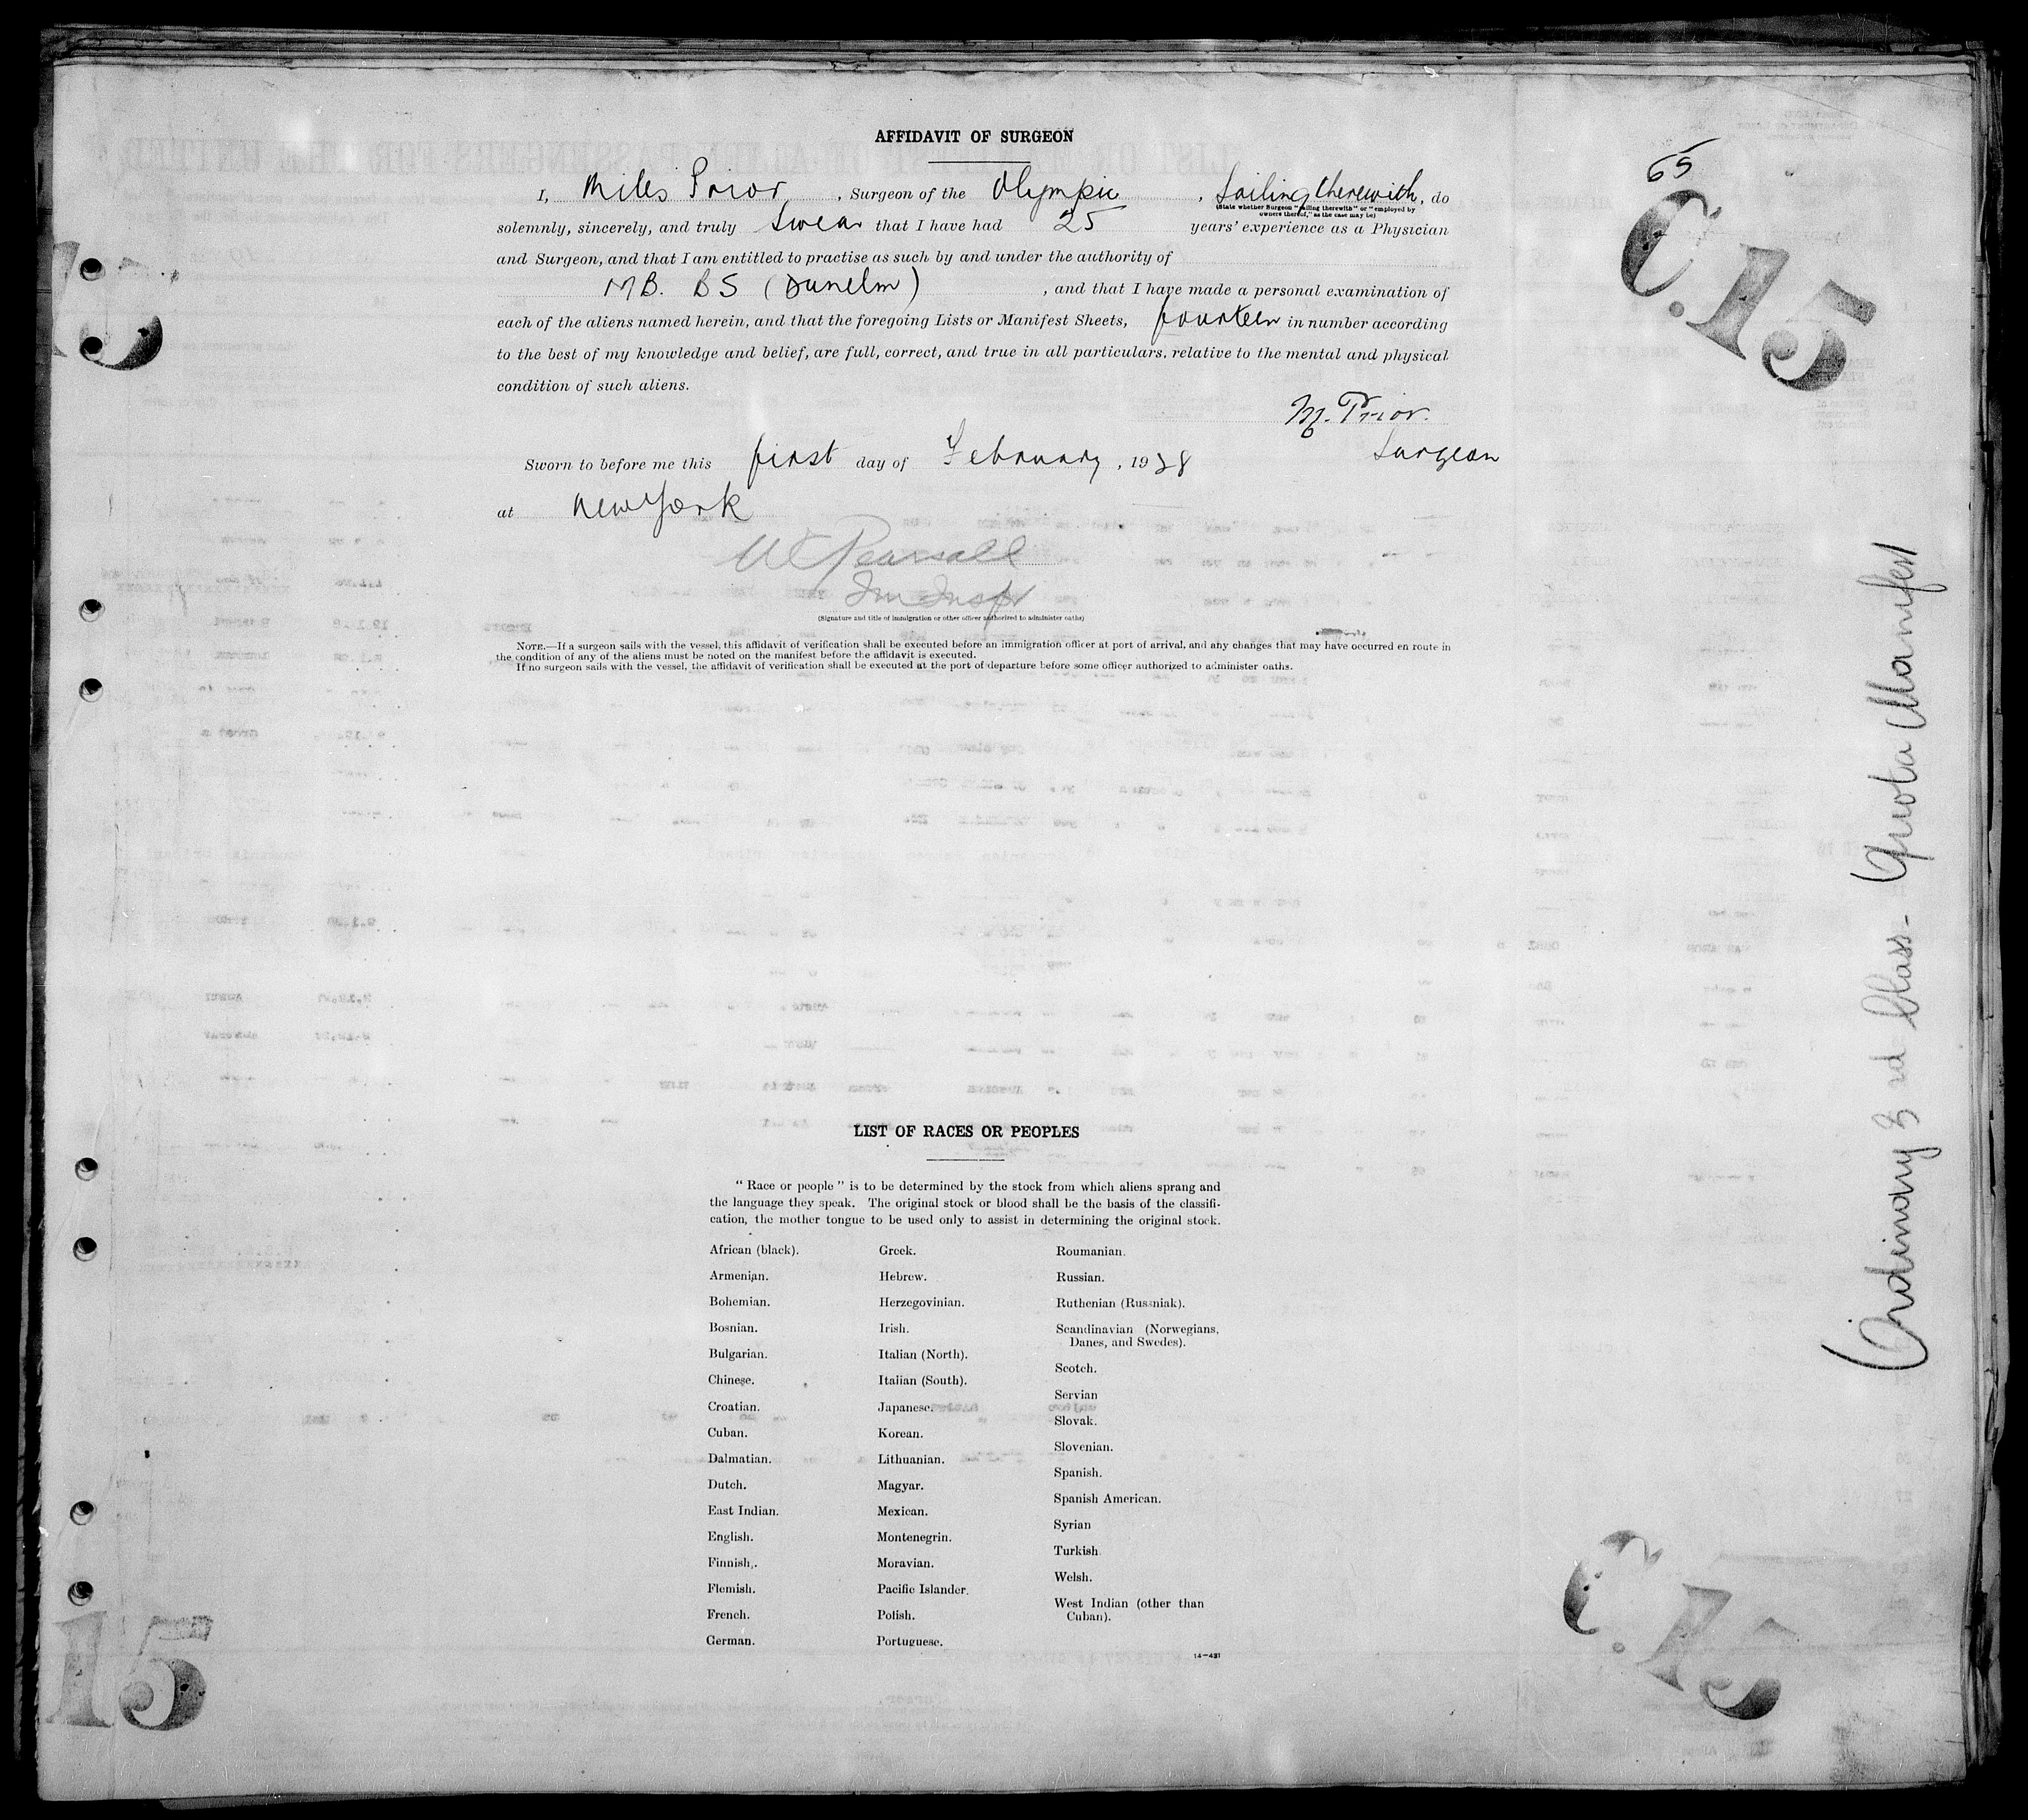 AFFIDAVIT OF SURGEON
65
C.15
I, Miles Prior, Surgeon of the Olympic, Sailing therewith, do
(State whether Surgeon "sailing therewith" or "employed by
owners thereof," as the case may be)
solemnly, sincerely, and truly Swear that I have had 25 years' experience as a Physician
and Surgeon, and that I am entitled to practise as such by and under the authority of
MB. BS (Dunelm), and that I have made a personal examination of
each of the aliens named herein, and that the foregoing Lists or Manifest Sheets, fourteen in number according
to the best of my knowledge and belief, are full, correct, and true in all particulars, relative to the mental and physical
condition of such aliens.
M. Prior.
Surgeon
Sworn to before me this first day of February, 1928
at New York
W Pearsall
Im Inspr
(Signature and title of immigration or other officer authorized to administer oaths)
NOTE.—If a surgeon sails with the vessel, this affidavit of verification shall be executed before an immigration officer at port of arrival, and any changes that may have occurred en route in
the condition of any of the aliens must be noted on the manifest before the affidavit is executed.
If no surgeon sails with the vessel, the affidavit of verification shall be executed at the port of departure before some officer authorized to administer oaths.
Ordinary 3rd Class - Quota Manifest
LIST OF RACES OR PEOPLES
"Race or people" is to be determined by the stock from which aliens sprang and
the language they speak. The original stock or blood shall be the basis of the classifi-
cation, the mother tongue to be used only to assist in determining the original stock.
African (black).
Armenian.
Bohemian.
Bosnian.
Bulgarian.
Chinese.
Croatian.
Cuban.
Dalmatian.
Dutch.
East Indian.
English.
Finnish.
Flemish.
French.
German.
Greek.
Hebrew.
Herzegovinian.
Irish.
Italian (North).
Italian (South).
Japanese.
Korean.
Lithuanian.
Magyar.
Mexican.
Montenegrin.
Moravian.
Pacific Islander.
Polish.
Portuguese.
Roumanian.
Russian.
Ruthenian (Russniak).
Scandinavian (Norwegians,
Danes, and Swedes).
Scotch.
Servian
Slovak.
Slovenian.
Spanish.
Spanish American.
Syrian
Turkish
Welsh.
West Indian (other than
Cuban).
14-431
15
C.15